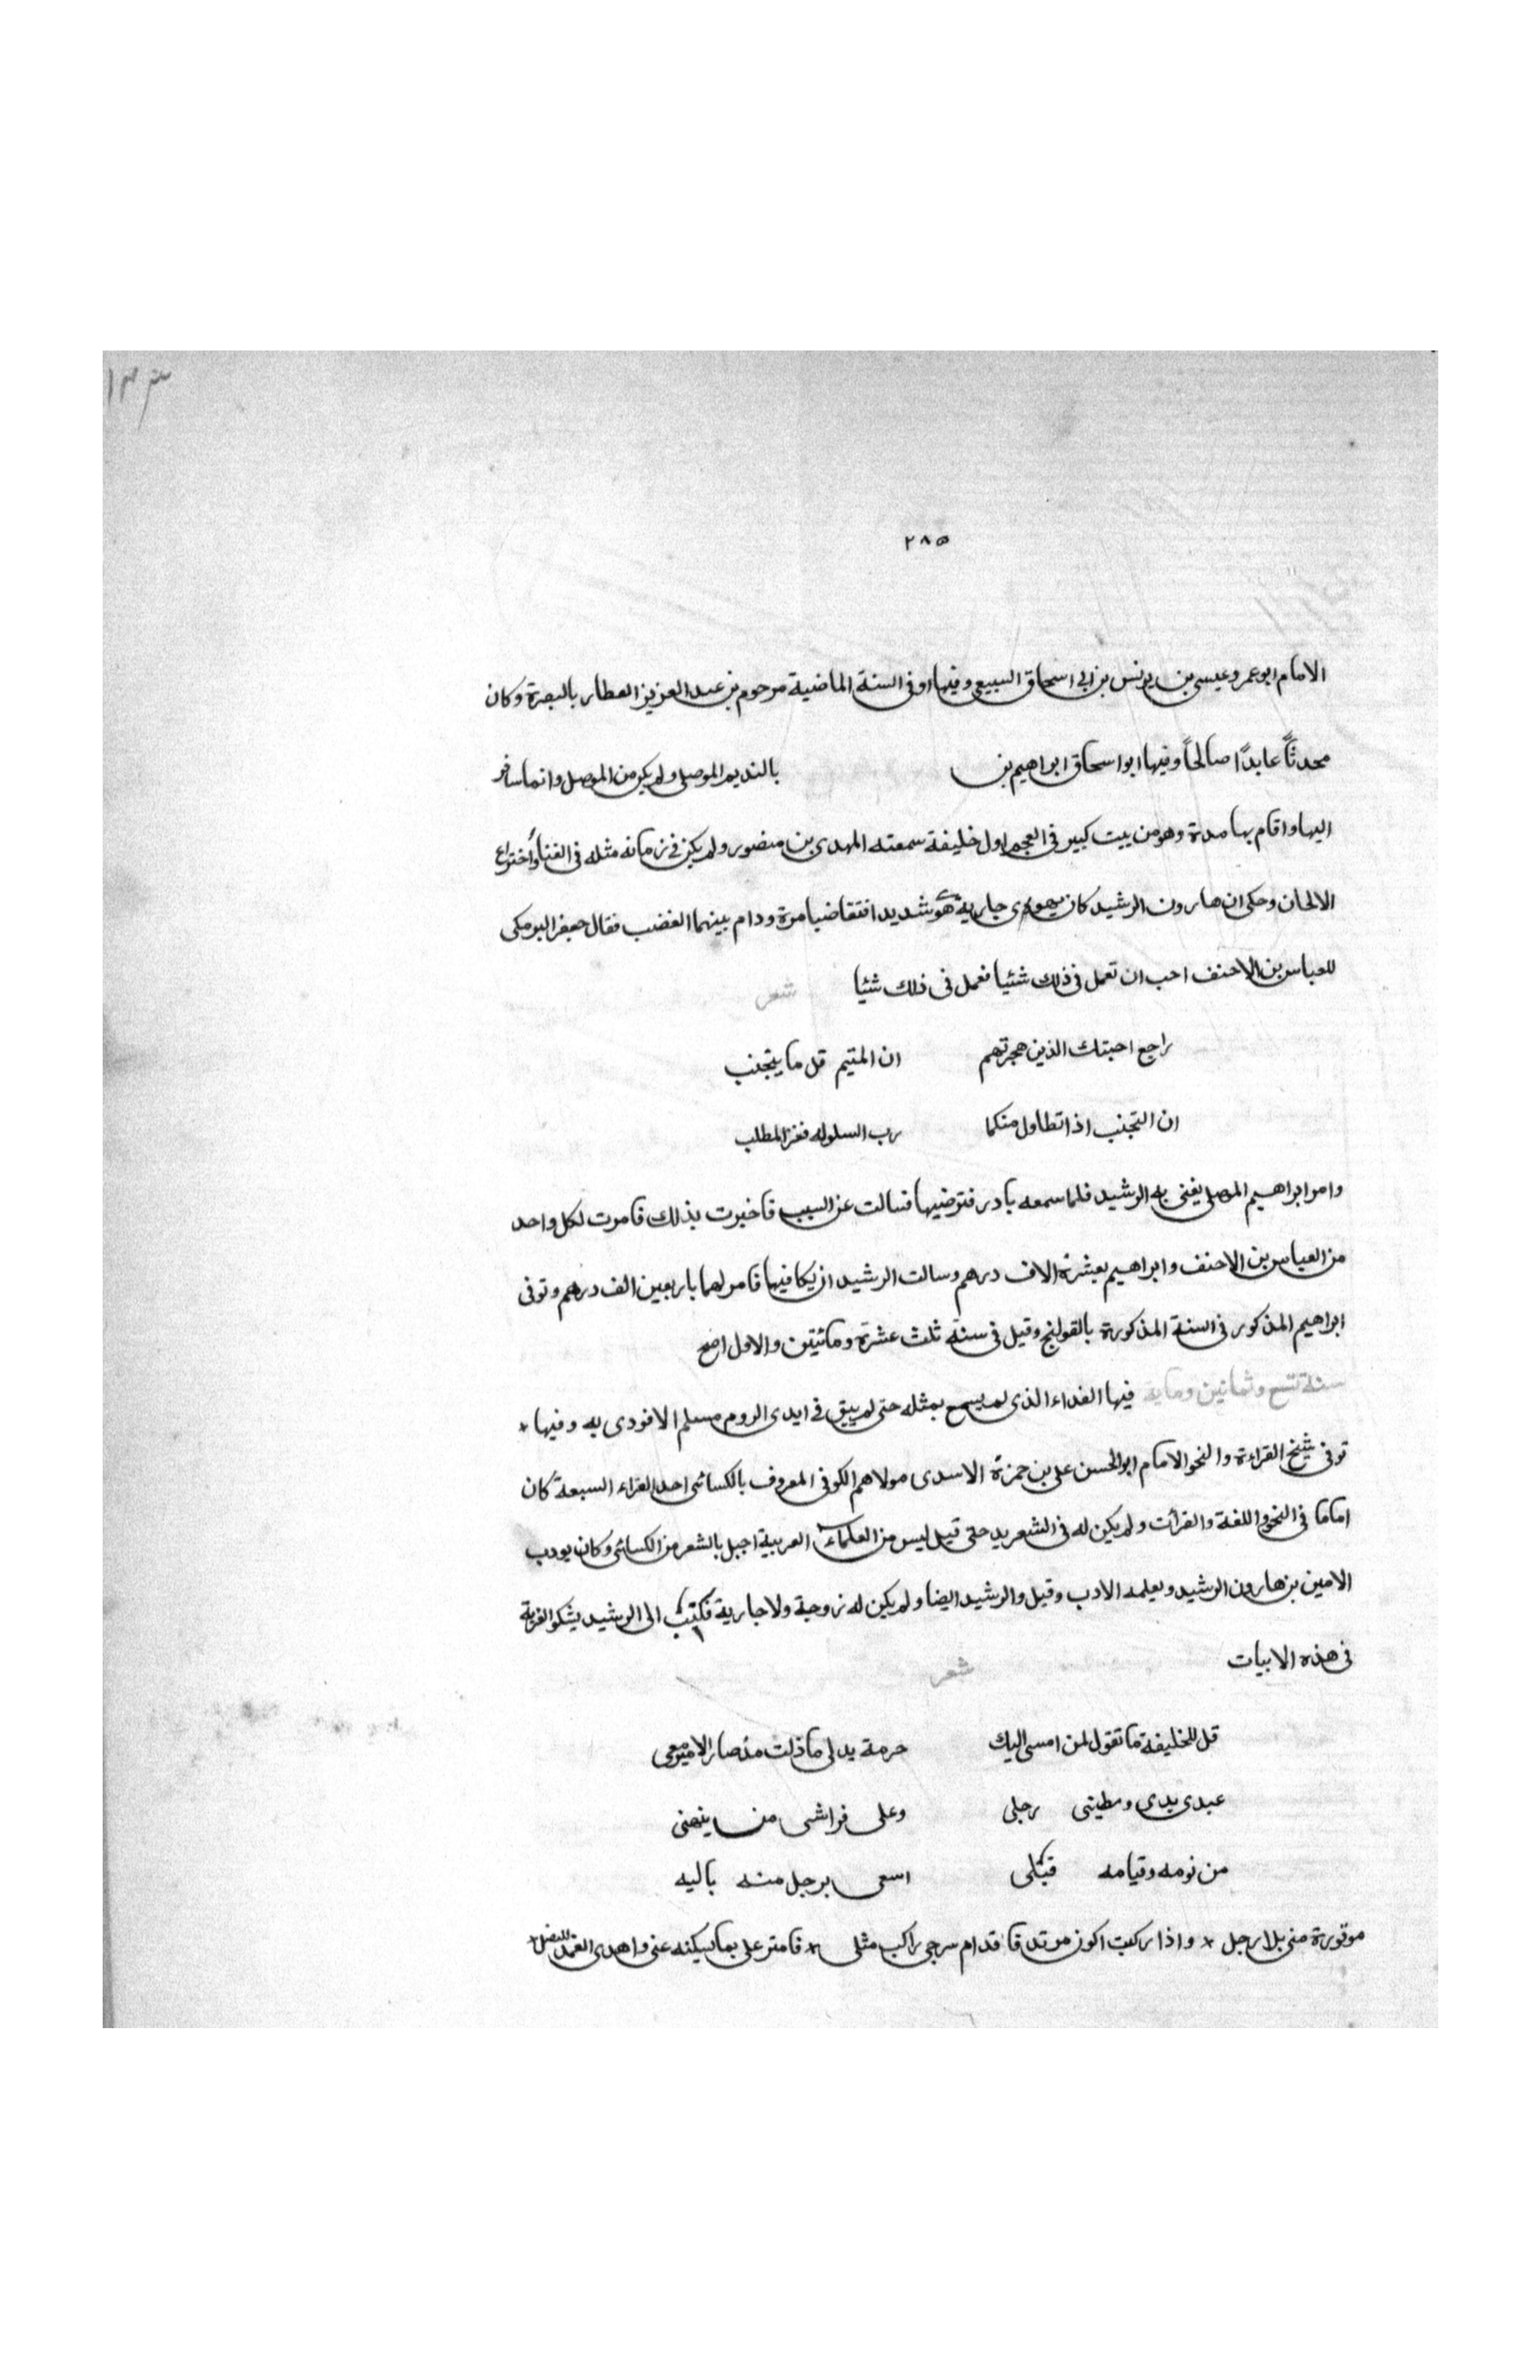 ٢٨٥
الامام ابو عمرو عيسى بن يونس بن ابى اسحاق السبيعى وفيها او فى السنة الماضية مرحوم بن عبد العزيز العطار بالبصرة وكان
محدثاً عابدًا صالحاً وفيها ابو اسحاق ابراهيم بن بالنديم الموصلى ولم يكن من الموصل وانما سافر
اليها واقام بها مدة وهو من بيت كبير فى العجم اول خليفة سمعته المهدى بن منصور ولم يكن فى زمانه مثله فى الغناء واختراع
الالحان وحكى ان هارون الرشيد كان يهوى جارية هوى شديدا فتغاضبا مرة ودام بينهما الغضب فقال جعفر البرمكى
للعباس بن الاحنف احب ان تعمل فى ذلك شئيا فعمل فى ذلك شئيا شعر
راجع احبتك الذين هجرتهم ان المتيم قل ما يتجنب
ان التجنب اذا تطاول منكما رب السلو له فعز المطلب
وامر ابراهيم المصلى يغنى به الرشيد فلما سمعه بادر فترضيها فسالت عن السبب فاخبرت بذلك فامرت لكل واحد
من العباس بن الاحنف وابراهيم بعشرة الاف درهم وسالت الرشيد ان يكافيها فامر لهما باربعين الف درهم وتوفى
ابراهيم المذكور فى السنة المذكورة بالقولنج وقيل فى سنة ثلث عشرة ومائتين والاول اصح
سنة تسع وثمانين وماية فيها الفداء الذى لم يسمع بمثله حتى لم يبق فى ايدى الروم مسلم الا فودى به وفيها
توفى شيخ القراءة والنحو الامام ابو الحسن على بن حمزة الاسدى مولاهم الكوفى المعروف بالكسائى احد القراء السبعة كان
اماما فى النحو واللغة والقرأت ولم يكن له فى الشعر يد حتى قيل ليس من العلماء العربية اجبل بالشعر من الكسائى وكان يودب
الامين بن هارون الرشيد ويعلمه الادب وقيل والرشيد ايضا ولم يكن له زوجة ولا جارية فكتب الى الرشيد يشكو الغربة
فى هذه الابيات شعر
قل للخليفة ما تقول لمن امسى اليك حرمة يدلى ما زلت مذ صار الامين معى
عبدى يدى ومطيتى رجلى وعلى فراشى من ينهنى
من نومه وقيامه قبلى اسعى برجل منه باليه
موتورة منى بلا رجل * واذا ركبت اكون مرتدفا قدام سرجى راكب مثلى * فامتر على بما يسكنه عنى واهدى الغمد للنصل